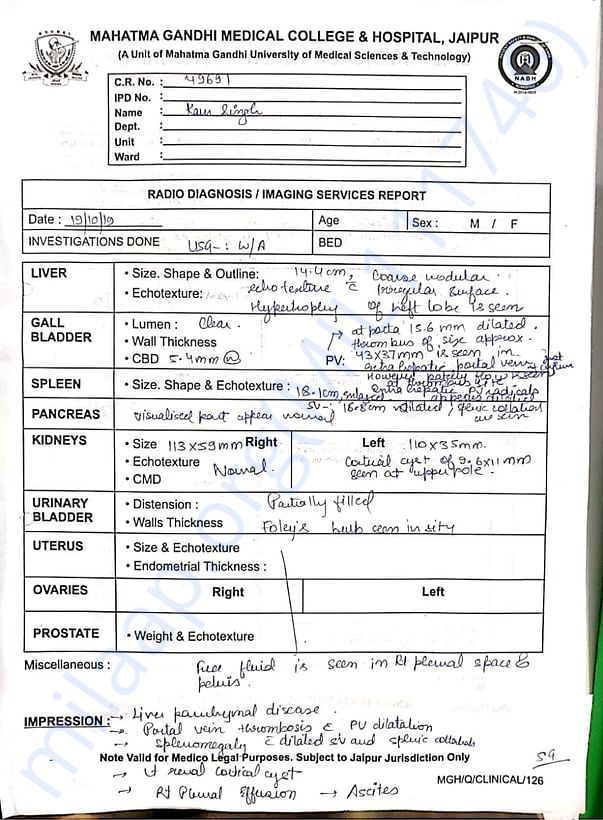 MAHATMA GANDHI MEDICAL COLLEGE & HOSPITAL, JAIPUR
(A Unit of Mahatma Gandhi University of Medical Sciences & Technology)
NABH
C.R. No. : 49691
IPD No. :
Name :
Singh
Dept. :
Unit :
Ward :
RADIO DIAGNOSIS / IMAGING SERVICES REPORT
Date : 19/10/19 Age Sex : M / F
INVESTIGATIONS DONE USG-: W/A BED
LIVER • Size. Shape & Outline: 14.4cm, Coarse nodular
• Echotexture: echotexture c̄ irregular surface.
Hyperthophy of left lobe is seen
GALL BLADDER • Lumen : Clear. at porta 15.6 mm dilated.
• Wall Thickness thrombus of size approx.
• CBD 5.4mm (N) PV: 43x37mm is seen in
extrahepatic portal vein
However
SPLEEN • Size. Shape & Echotexture : 18.1cm, enlarged
intra hepatic PV radicals
appears dilated
PANCREAS visualised part appear normal
SV-: 16.8cm dilated, splenic collaterals
are seen
KIDNEYS • Size 113x59mm Right Left 110x35mm.
• Echotexture Normal. Cortical cyst of 9.6x11mm
• CMD seen at upper pole.
URINARY BLADDER • Distension : Partially filled
• Walls Thickness Foley's bulb seen in sity
UTERUS • Size & Echotexture
• Endometrial Thickness :
OVARIES Right Left
PROSTATE • Weight & Echotexture
Miscellaneous : Free fluid is seen in Rt pleural space &
pelvis.
IMPRESSION :- → Liver parenchymal disease.
→ Portal vein thrombosis c̄ PV dilatation
→ Splenomegaly c̄ dilated SV and splenic collaterals
Note Valid for Medico Legal Purposes. Subject to Jaipur Jurisdiction Only
→ Lt renal cortical cyst
MGH/Q/CLINICAL/126
→ Rt Pleural Effusion → Ascites